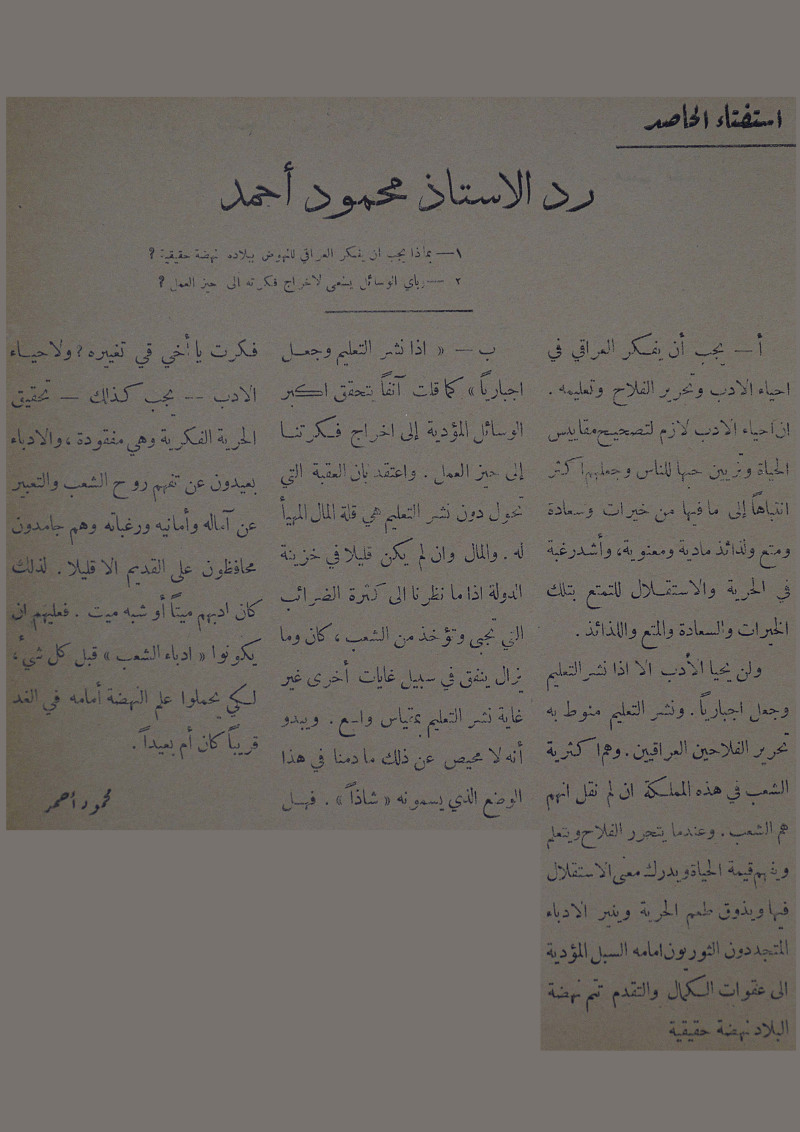 استفتاء الحاصد
رد الاستاذ محمود أحمد
١ — بماذا يجب ان يفكر العراقي للنهوض ببلاده نهضة حقيقية ؟
٢ — باي الوسائل يسعى لاخراج فكرته الى حيز العمل ؟
أ — يجب أن يفكر العراقي في
احياء الادب وتحرير الفلاح وتعليمه .
ان احياء الادب لازم لتصحيح مقاييس
الحياة وتزيين حبها للناس وجعلهم اكثر
انتباهاً إلى ما فيها من خيرات وسعادة
ومتع ولذائذ مادية ومعنوية ، وأشد رغبة
في الحرية والاستقلال للتمتع بتلك
الخيرات والسعادة والمتع واللذائذ .
ولن يحيا الأدب الا اذا نشر التعليم
وجعل اجبارياً . ونشر التعليم منوط به
تحرير الفلاحين العراقيين . وهم اكثرية
الشعب في هذه المملكة ان لم نقل انهم
هم الشعب . وعندما يتحرر الفلاح ويتعلم
ويفهم قيمة الحياة ويدرك معنى الاستقلال
فيها ويذوق طعم الحرية وينير الادباء
المتجددون الثوريون امامه السبل المؤدية
الى عقوات الكمال والتقدم تتم نهضة
البلاد نهضة حقيقية
ب — « اذا نشر التعليم وجعل
اجبارياً » كما قلت آنفاً يتحقق اكبر
الوسائل المؤدية إلى اخراج فكرتنا
إلى حيز العمل . واعتقد بان العقبة التي
تحول دون نشر التعليم هي قلة المال المهيأ
له . والمال وان لم يكن قليلا في خزينة
الدولة اذا ما نظرنا الى كثرة الضرائب
التي تجبى وتؤخذ من الشعب ، كان وما
يزال ينفق في سبيل غايات أخرى غير
غاية نشر التعليم بمقياس واسع . ويبدو
أنه لا محيص عن ذلك ما دمنا في هذا
الوضع الذي يسمونه « شاذاً » . فهل
فكرت يا أخي قي تغييره ؟ ولاحياء
الادب -- يجب كذلك — تحقيق
الحرية الفكرية وهي مفقودة ، والادباء
بعيدون عن تفهم روح الشعب والتعبير
عن آماله وأمانيه ورغباته وهم جامدون
محافظون على القديم الا قليلا . لذلك
كان ادبهم ميتاً أو شبه ميت . فعليهم ان
يكونوا « ادباء الشعب » قبل كل شيء ،
لكي يحملوا علم النهضة أمامه في الغد
قريباً كان أم بعيداً .
محمود أحمد